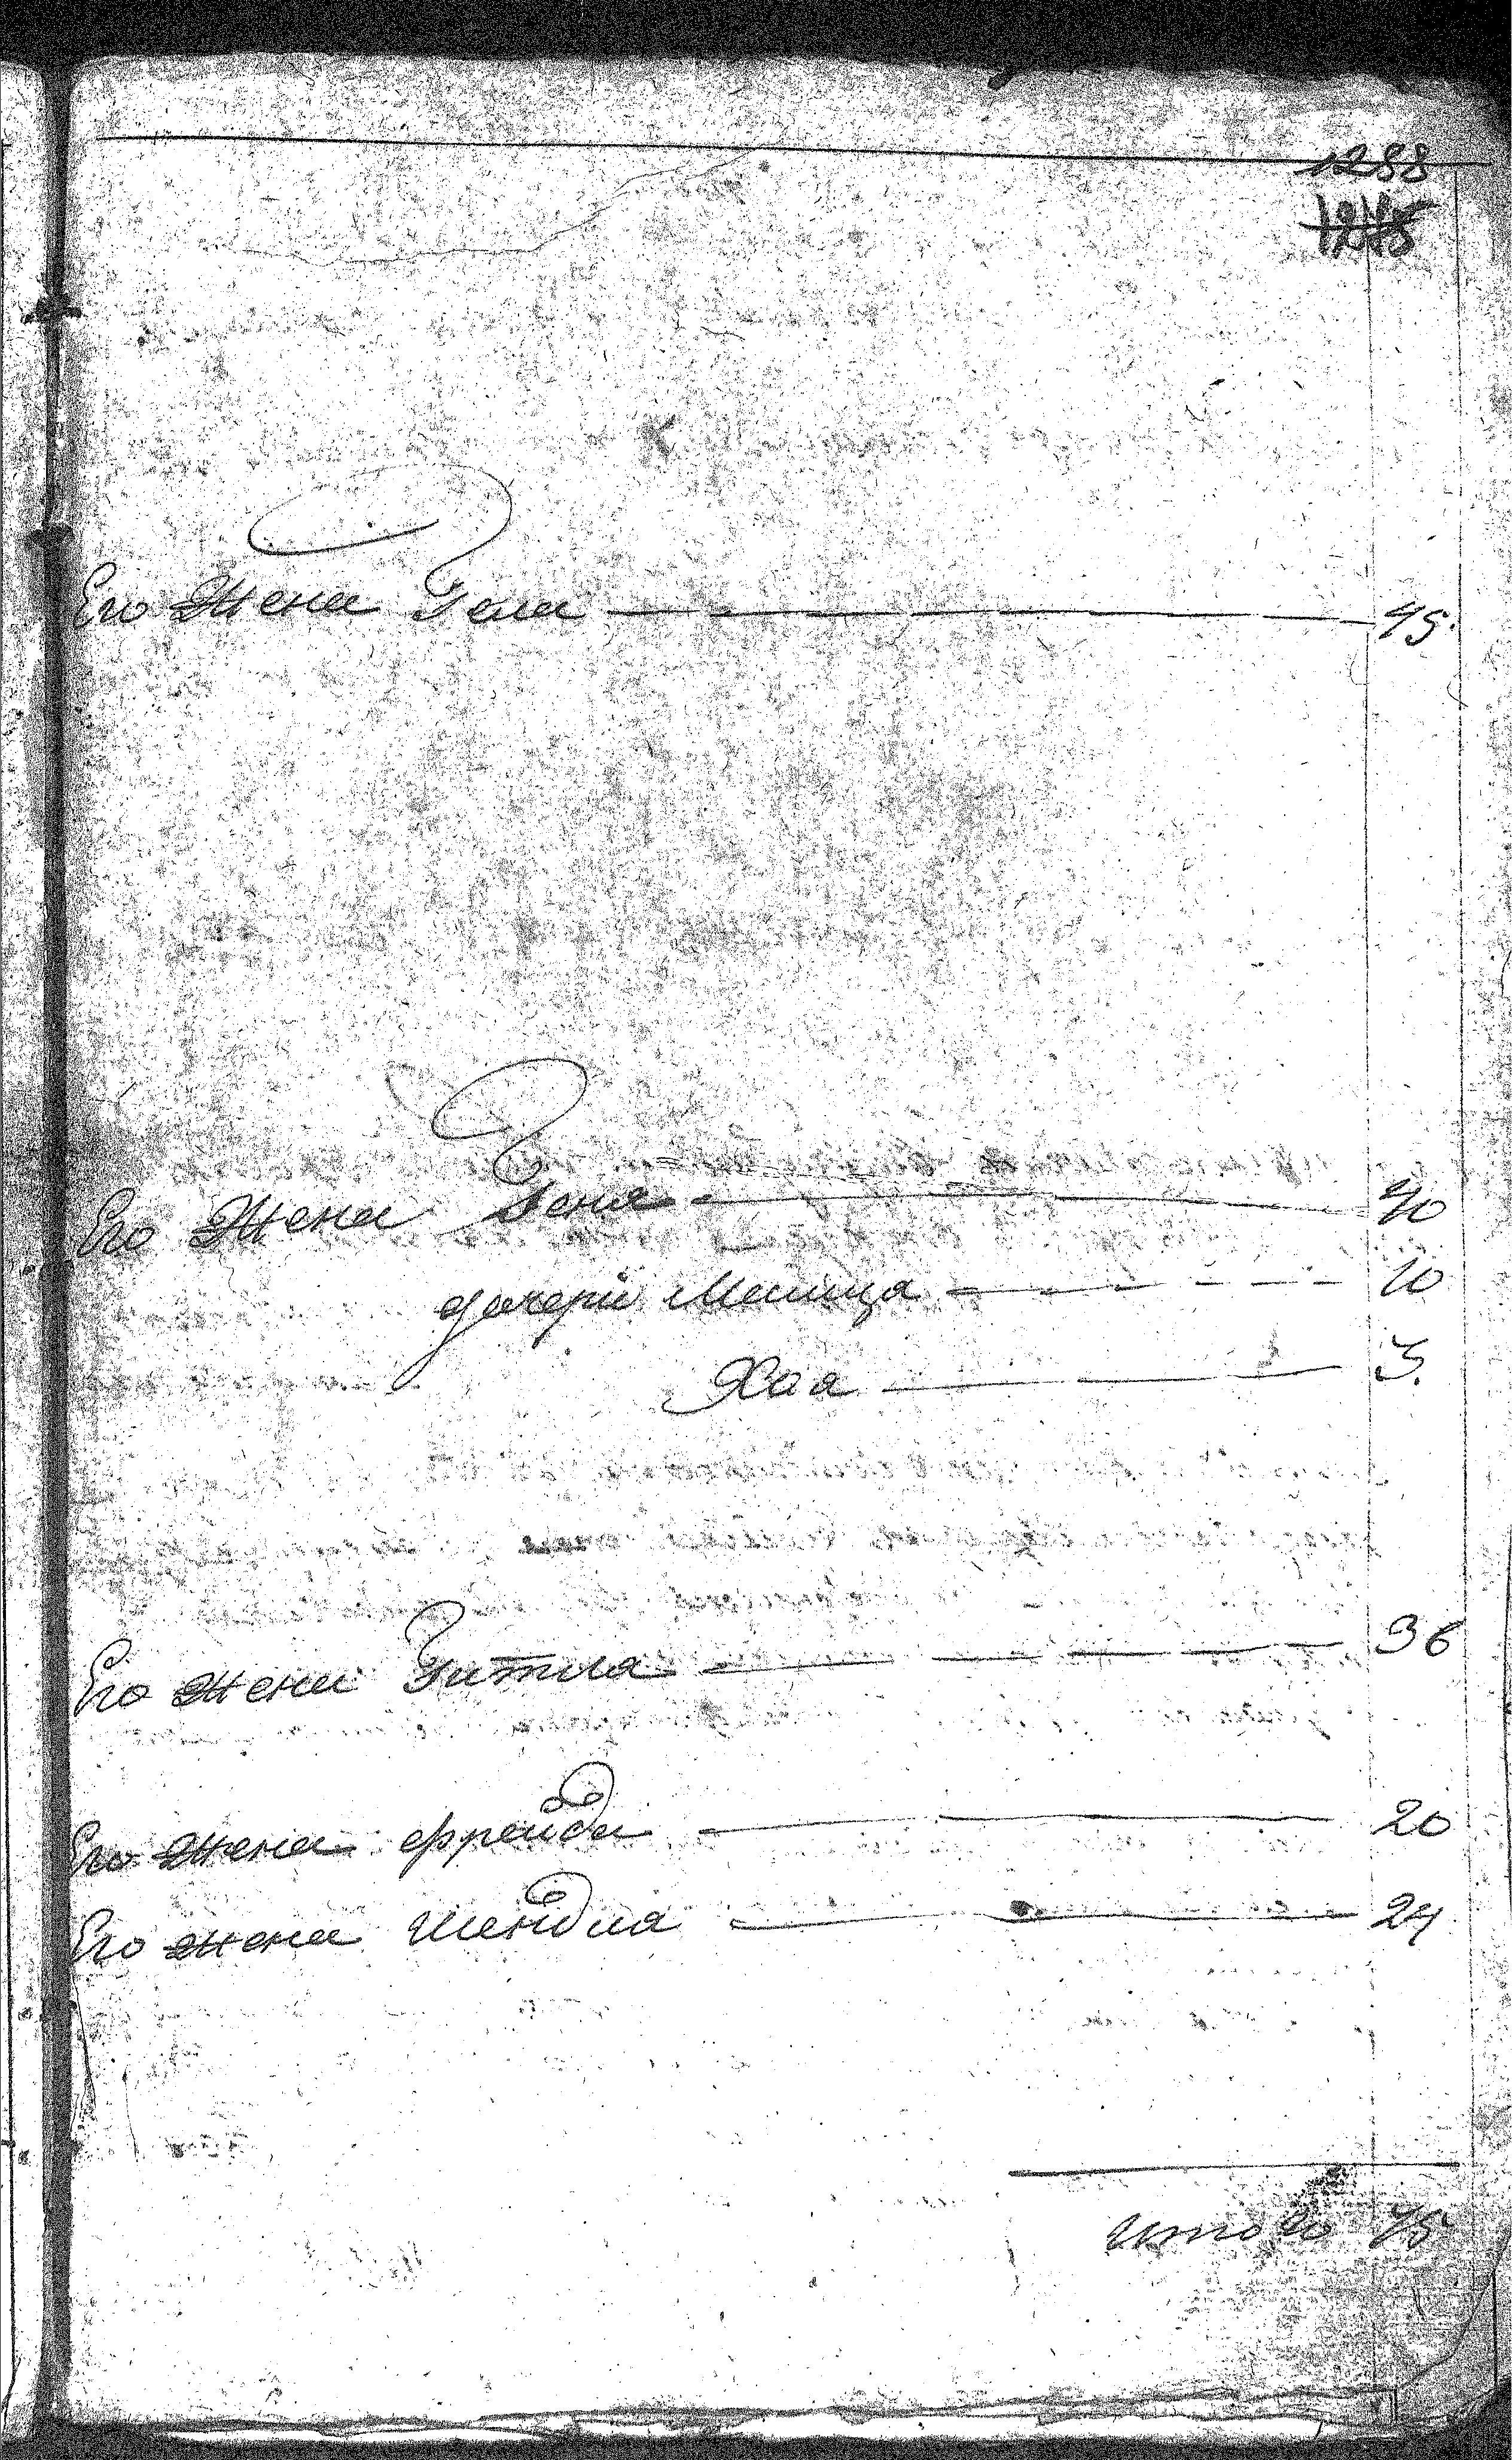 1288
1275
Его Жена Геля 45.
Его Жена Геня 40
дочери Мишца 10
Хая 3.
Его жена Гитля 36
Его жена Фрейда 20
Его жена Шендля 24
Итого